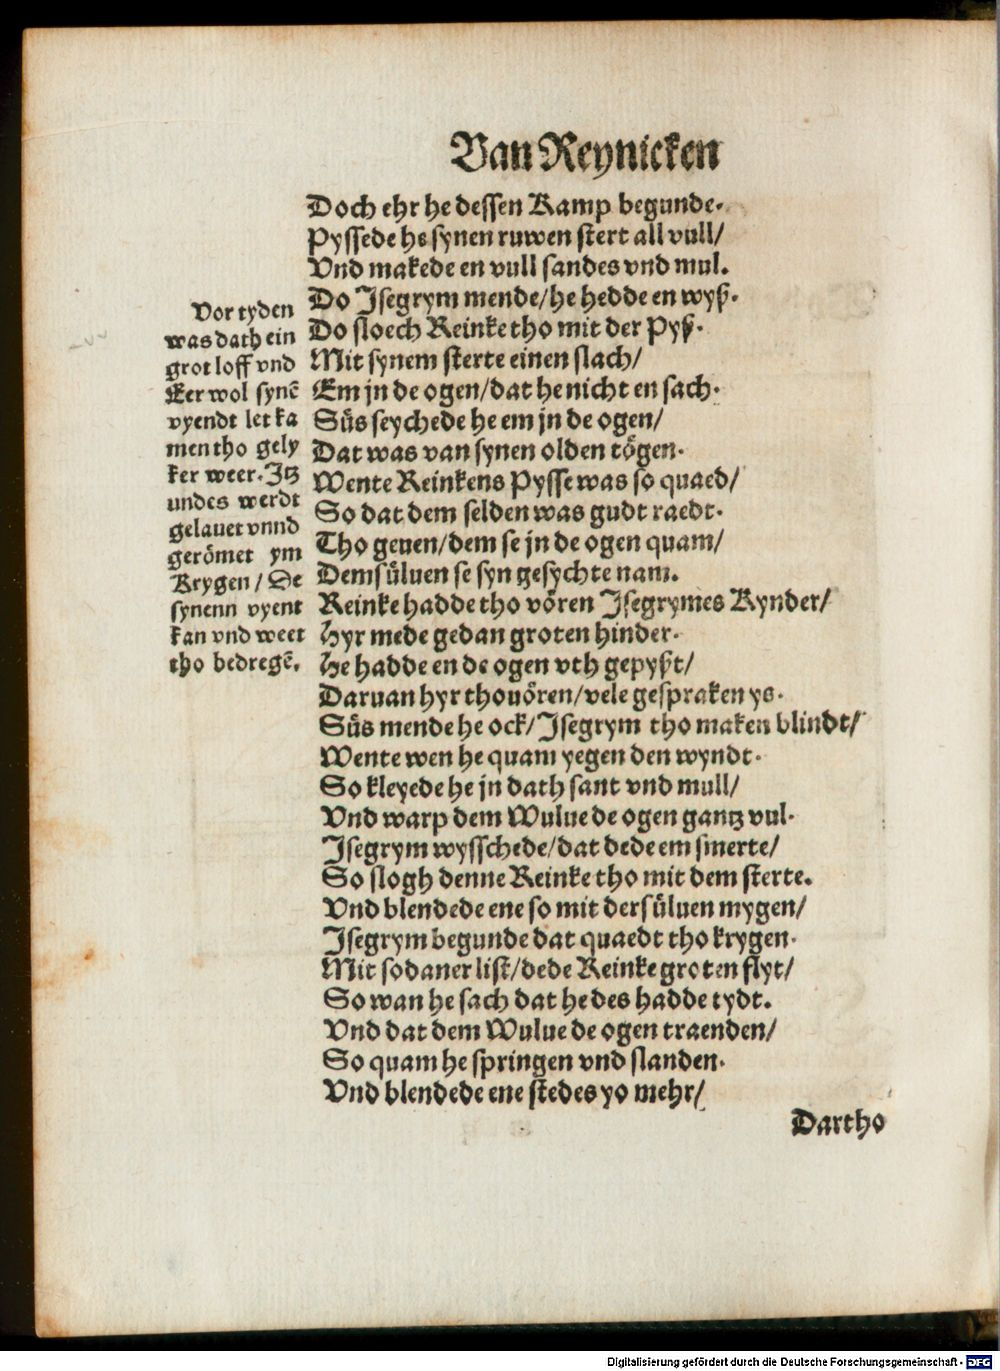 Van Reynicken
Doch ehr he dessen Kamp begunde.
Pyssede he synen ruwen stert all vull/
Vnd makede en vull sandes vnd mul.
Do Isegrym mende/he hedde en wyß.
Do sloech Reinke tho mit der Pyß.
Mit synem sterte einen slach/
Em jn de ogen/dat he nicht en sach.
Süs seychede he em jn de ogen/
Dat was van synen olden tögen.
Wente Reinkens Pysse was so quaed/
So dat dem selden was gudt raedt.
Tho geuen/dem se jn de ogen quam/
Demsüluen se syn gesychte nam.
Reinke hadde tho vören Isegrymes Kynder/
Hyr mede gedan groten hinder.
He hadde en de ogen vth gepyßt/
Daruan hyr thouören/vele gespraken ys.
Süs mende he ock/Isegrym tho maken blindt/
Wente wen he quam yegen den wyndt.
So kleyede he jn dath sant vnd mull/
Vnd warp dem Wulue de ogen gantz vul.
Isegrym wysschede/dat dede em smerte/
So slogh denne Reinke tho mit dem sterte.
Vnd blendede ene so mit dersüluen mygen/
Isegrym begunde dat quaedt tho krygen.
Mit sodaner list/dede Reinke groten flyt/
So wan he sach dat he des hadde tydt.
Vnd dat dem Wulue de ogen traenden/
So quam he springen vnd slanden.
Vnd blendede ene stedes yo mehr/
Dartho
Vor tyden
was dath ein
grot loff vnd
Eer wol synē
vyendt let ka
men tho gely
ker weer. Itz
undes werdt
gelauet vnnd
gerömet ym
Krygen / De
synenn vyent
kan vnd weet
tho bedregē.
Digitalisierung gefördert durch die Deutsche Forschungsgemeinschaft - DFG